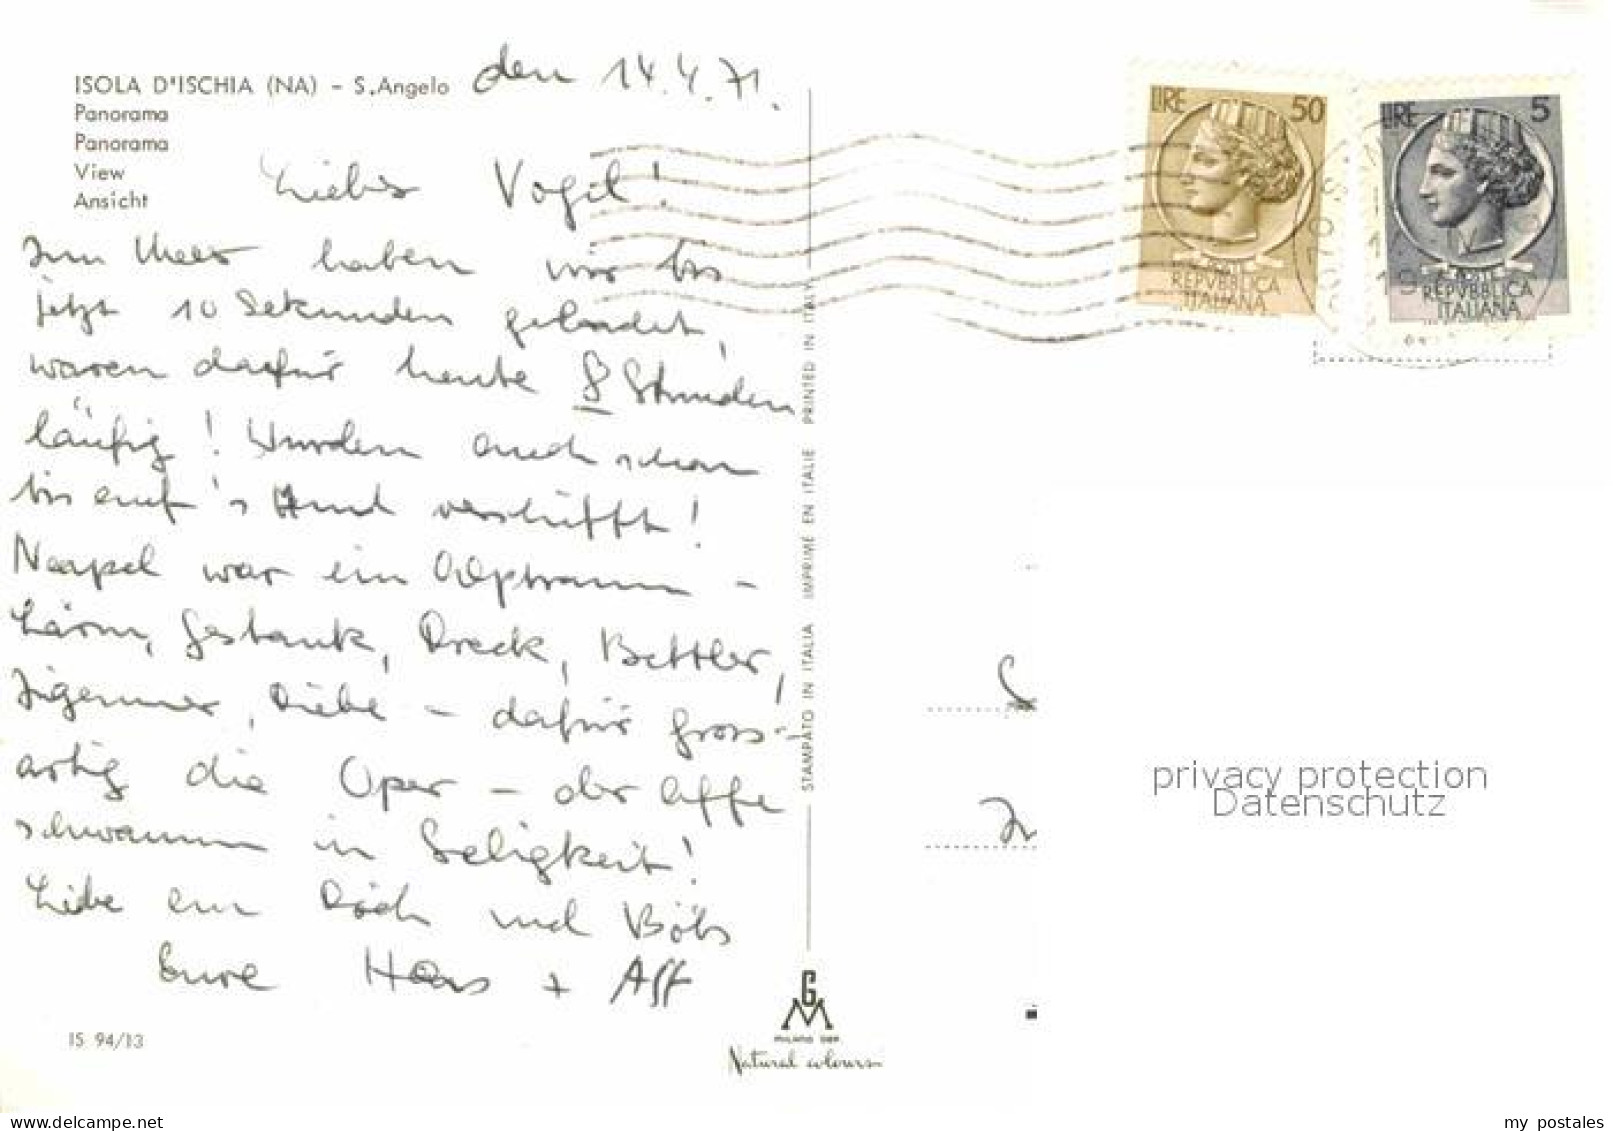 ISOLA D'ISCHIA (NA) - S.Angelo
Panorama
Panorama
View
Ansicht
den 14.4.71.
Liebes Vogil!
Im Meer haben wir bis
jetzt 10 Sekunden gebadet,
waren dafür heute 8 Stunden
läufig! Wurden auch schon
bis auf's Hemd verschifft!
Neapel war ein Alptraum -
Lärm, Gestank, Dreck, Bettler,
Zigeuner, Diebe - dafür gross-
artig die Oper - der Affe
schwamm in Seligkeit!
Liebe an und
Eure + Aff
IS 94/13
STAMPATO IN ITALIA IMPRIMÉ EN ITALIE PRINTED IN ITALY
GM
MILANO DEP.
Natural colours
LIRE 50
POSTE
REPVBBLICA
ITALIANA
LIRE 5
POSTE
REPVBBLICA
ITALIANA
privacy protection
Datenschutz
www.delcampe.net
my_postales